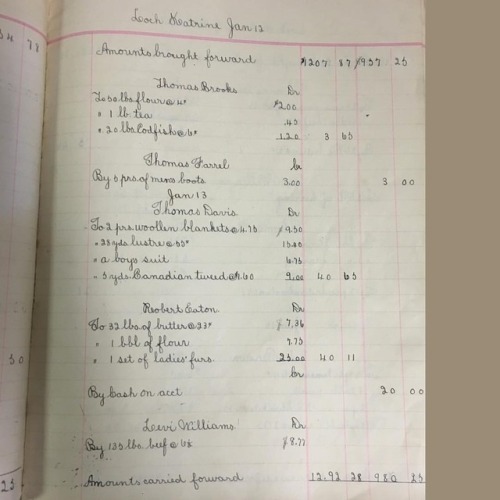 34 78
Loch Katrine Jan 12
Amounts brought forward $1207 87 $957 25
Thomas Brooks Dr
To 50 lbs flour @ 4¢ $2.00
" 1 lb. tea .45
" 20 lbs Codfish @ 6¢ 1.20 3 65
Thomas Farrel Cr
By 5 prs. of mens boots 3.00 3 00
Jan 13
Thomas Davis Dr
To 2 prs. woollen blankets @ 4.75 $9.50
a boys suit 6.75
" 5 yds. Canadian tweed @ 9.00 40 65
Robert Eaton Dr
To 32 lbs. of butter @ 23¢ $7.36
" 1 bbl of flour 7.75
" 1 set of ladies' furs. 25.00 40 11
50 Cr
By Cash on acct 20 00
Levi Williams Dr
By 135 lbs. beef @ $8.77
25 Amounts carried forward 12.92 28 980 25